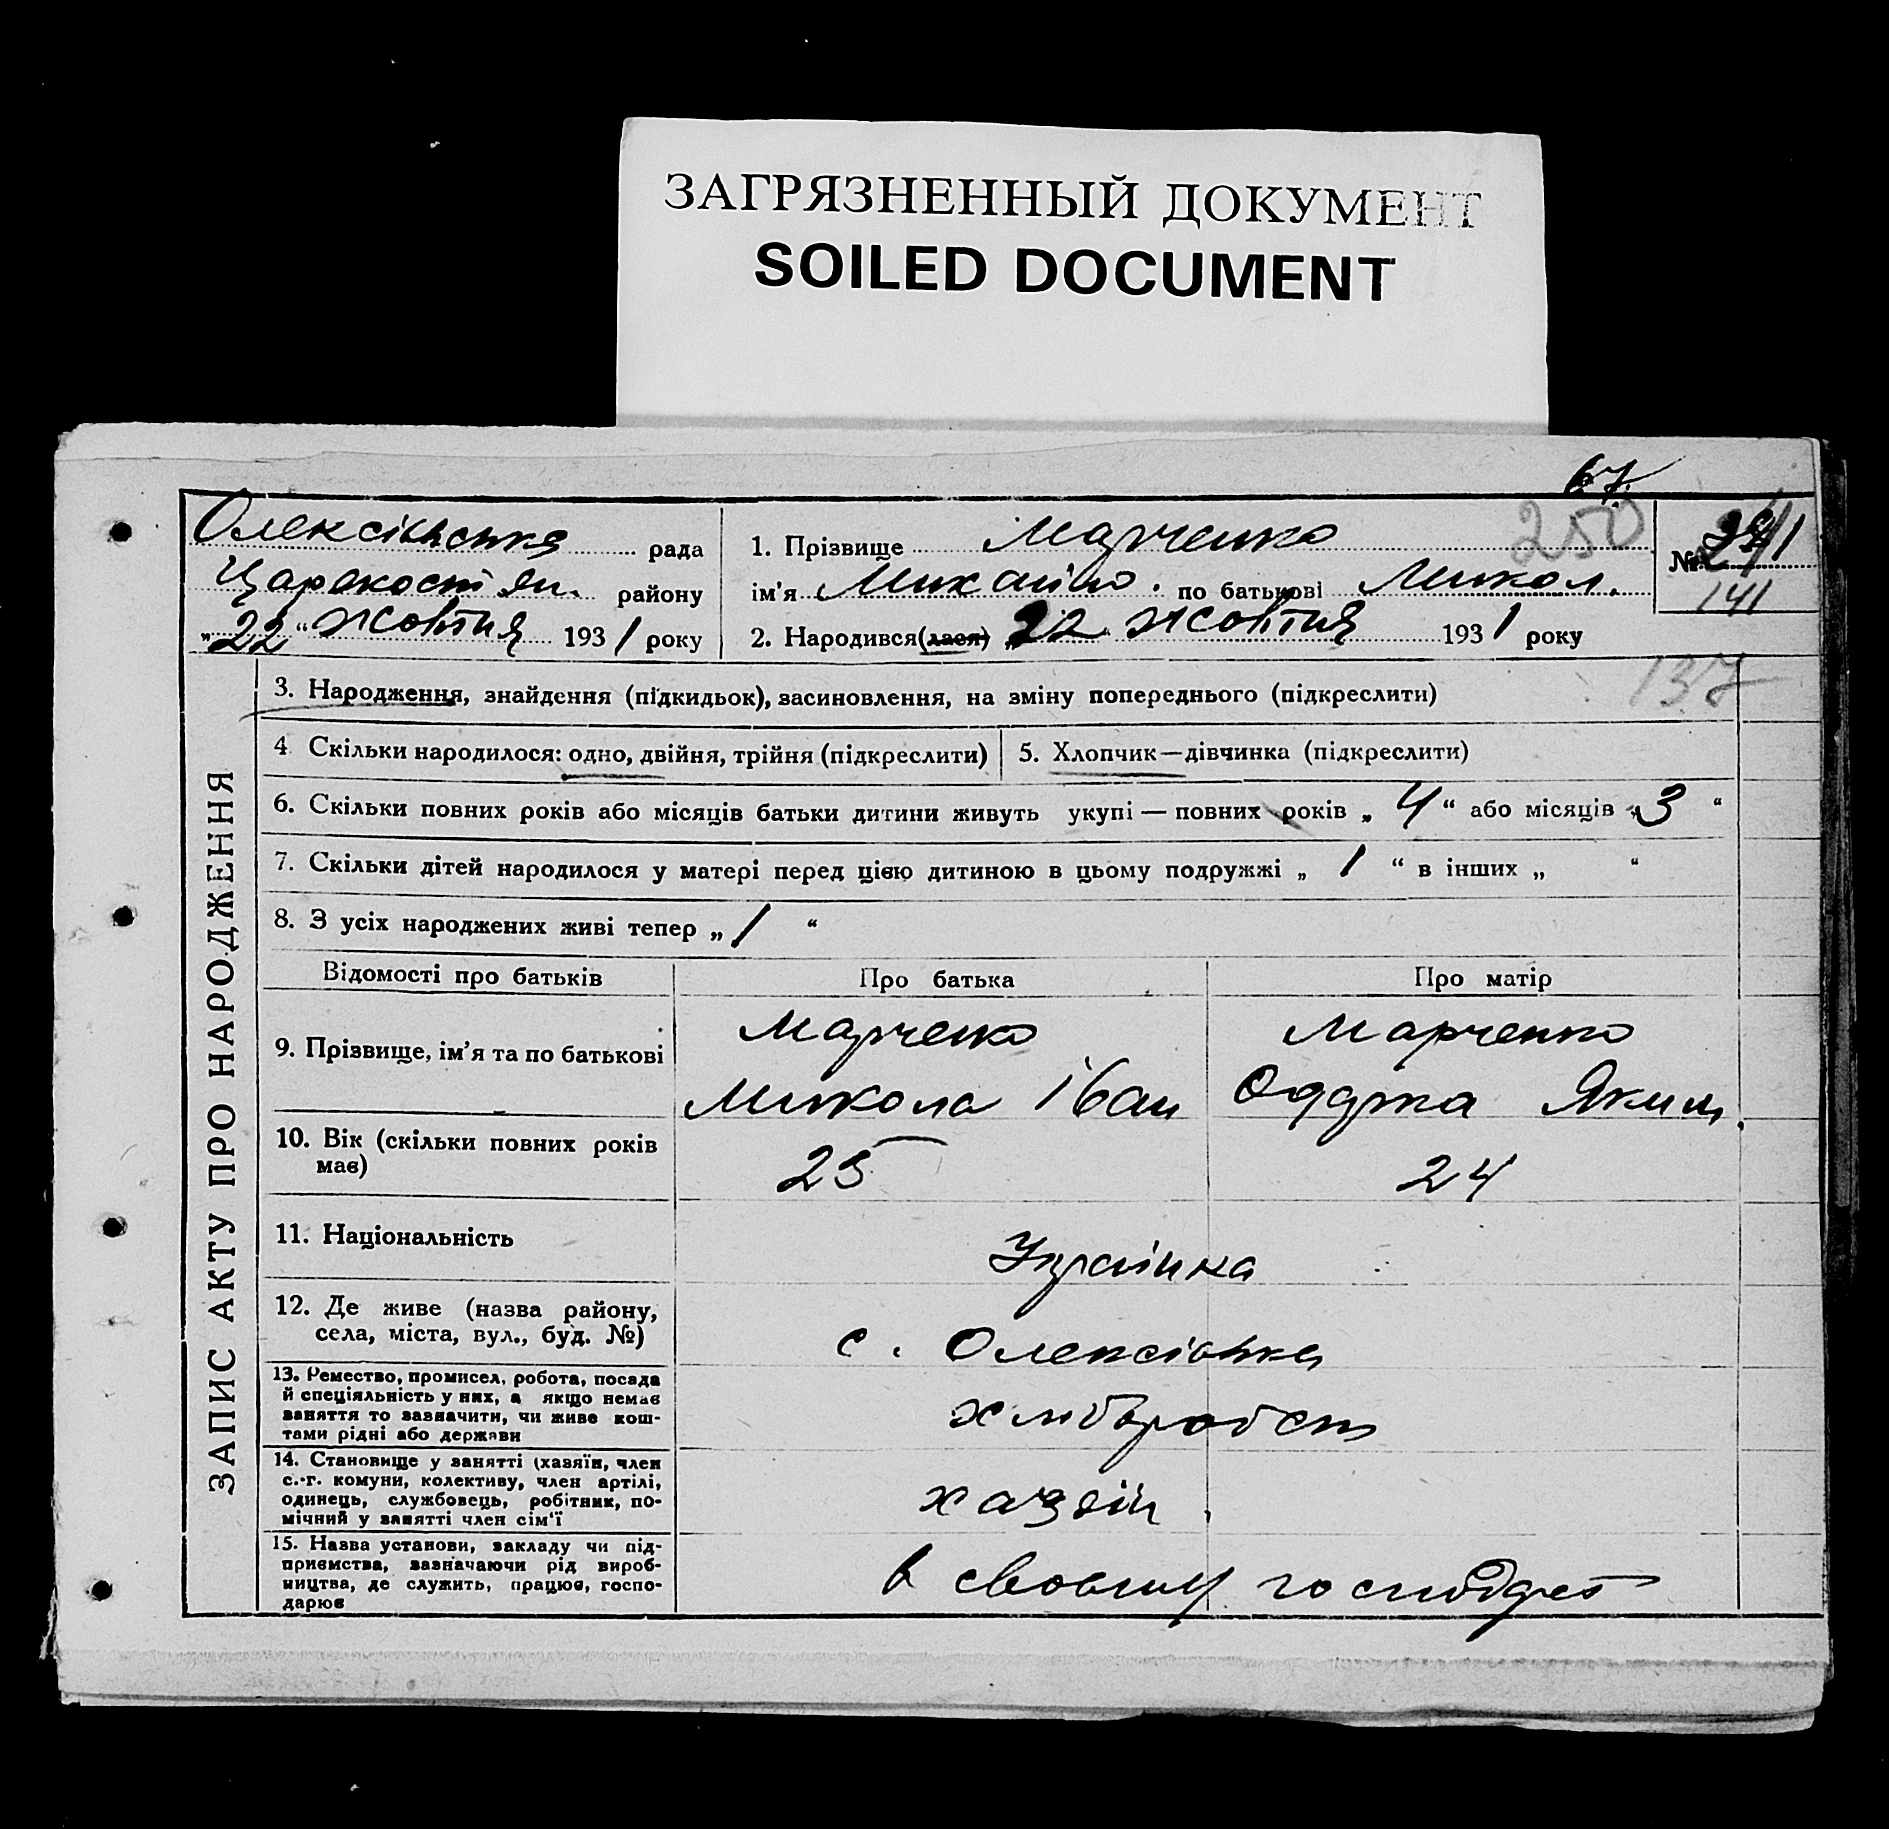 ЗАГРЯЗНЕННЫЙ ДОКУМЕНТ
SOILED DOCUMENT
67.
250
Олексіївська рада
Царекостян. району
„22“ жовтня 1931 року
1. Прізвище Марченко
ім'я Михайло. по батькові Микол.
2. Народився(лася) „22“ жовтня 1931 року
№
141
137
ЗАПИС АКТУ ПРО НАРОДЖЕННЯ
3. Народження, знайдення (підкидьок), засиновлення, на зміну попереднього (підкреслити)
4. Скільки народилося: одно, двійня, трійня (підкреслити)
5. Хлопчик—дівчинка (підкреслити)
6. Скільки повних років або місяців батьки дитини живуть укупі — повних років „4“ або місяців „3“
7. Скільки дітей народилося у матері перед цією дитиною в цьому подружжі „1“ в інших „ “
8. З усіх народжених живі тепер „1“
Відомості про батьків Про батька Про матір
9. Прізвище, ім'я та по батькові
Марченко
Микола Іван
Марченко
Одарка Яким.
10. Вік (скільки повних років має) 25 24
11. Національність Українка
12. Де живе (назва району,
села, міста, вул., буд. №) с. Олексіївка
13. Ремество, промисел, робота, посада
й спеціяльність у них, а якщо немає
заняття то зазначити, чи живе кош-
тами рідні або держави
хлібороби
14. Становище у занятті (хазяїн, член
с.-г. комуни, колективу, член артілі,
одинець, службовець, робітник, по-
мічний у занятті член сім'ї
хазяїн.
15. Назва установи, закладу чи під-
приємства, зазначаючи рід вироб-
ництва, де служить, працює, госпо-
дарює
в своєму господарст